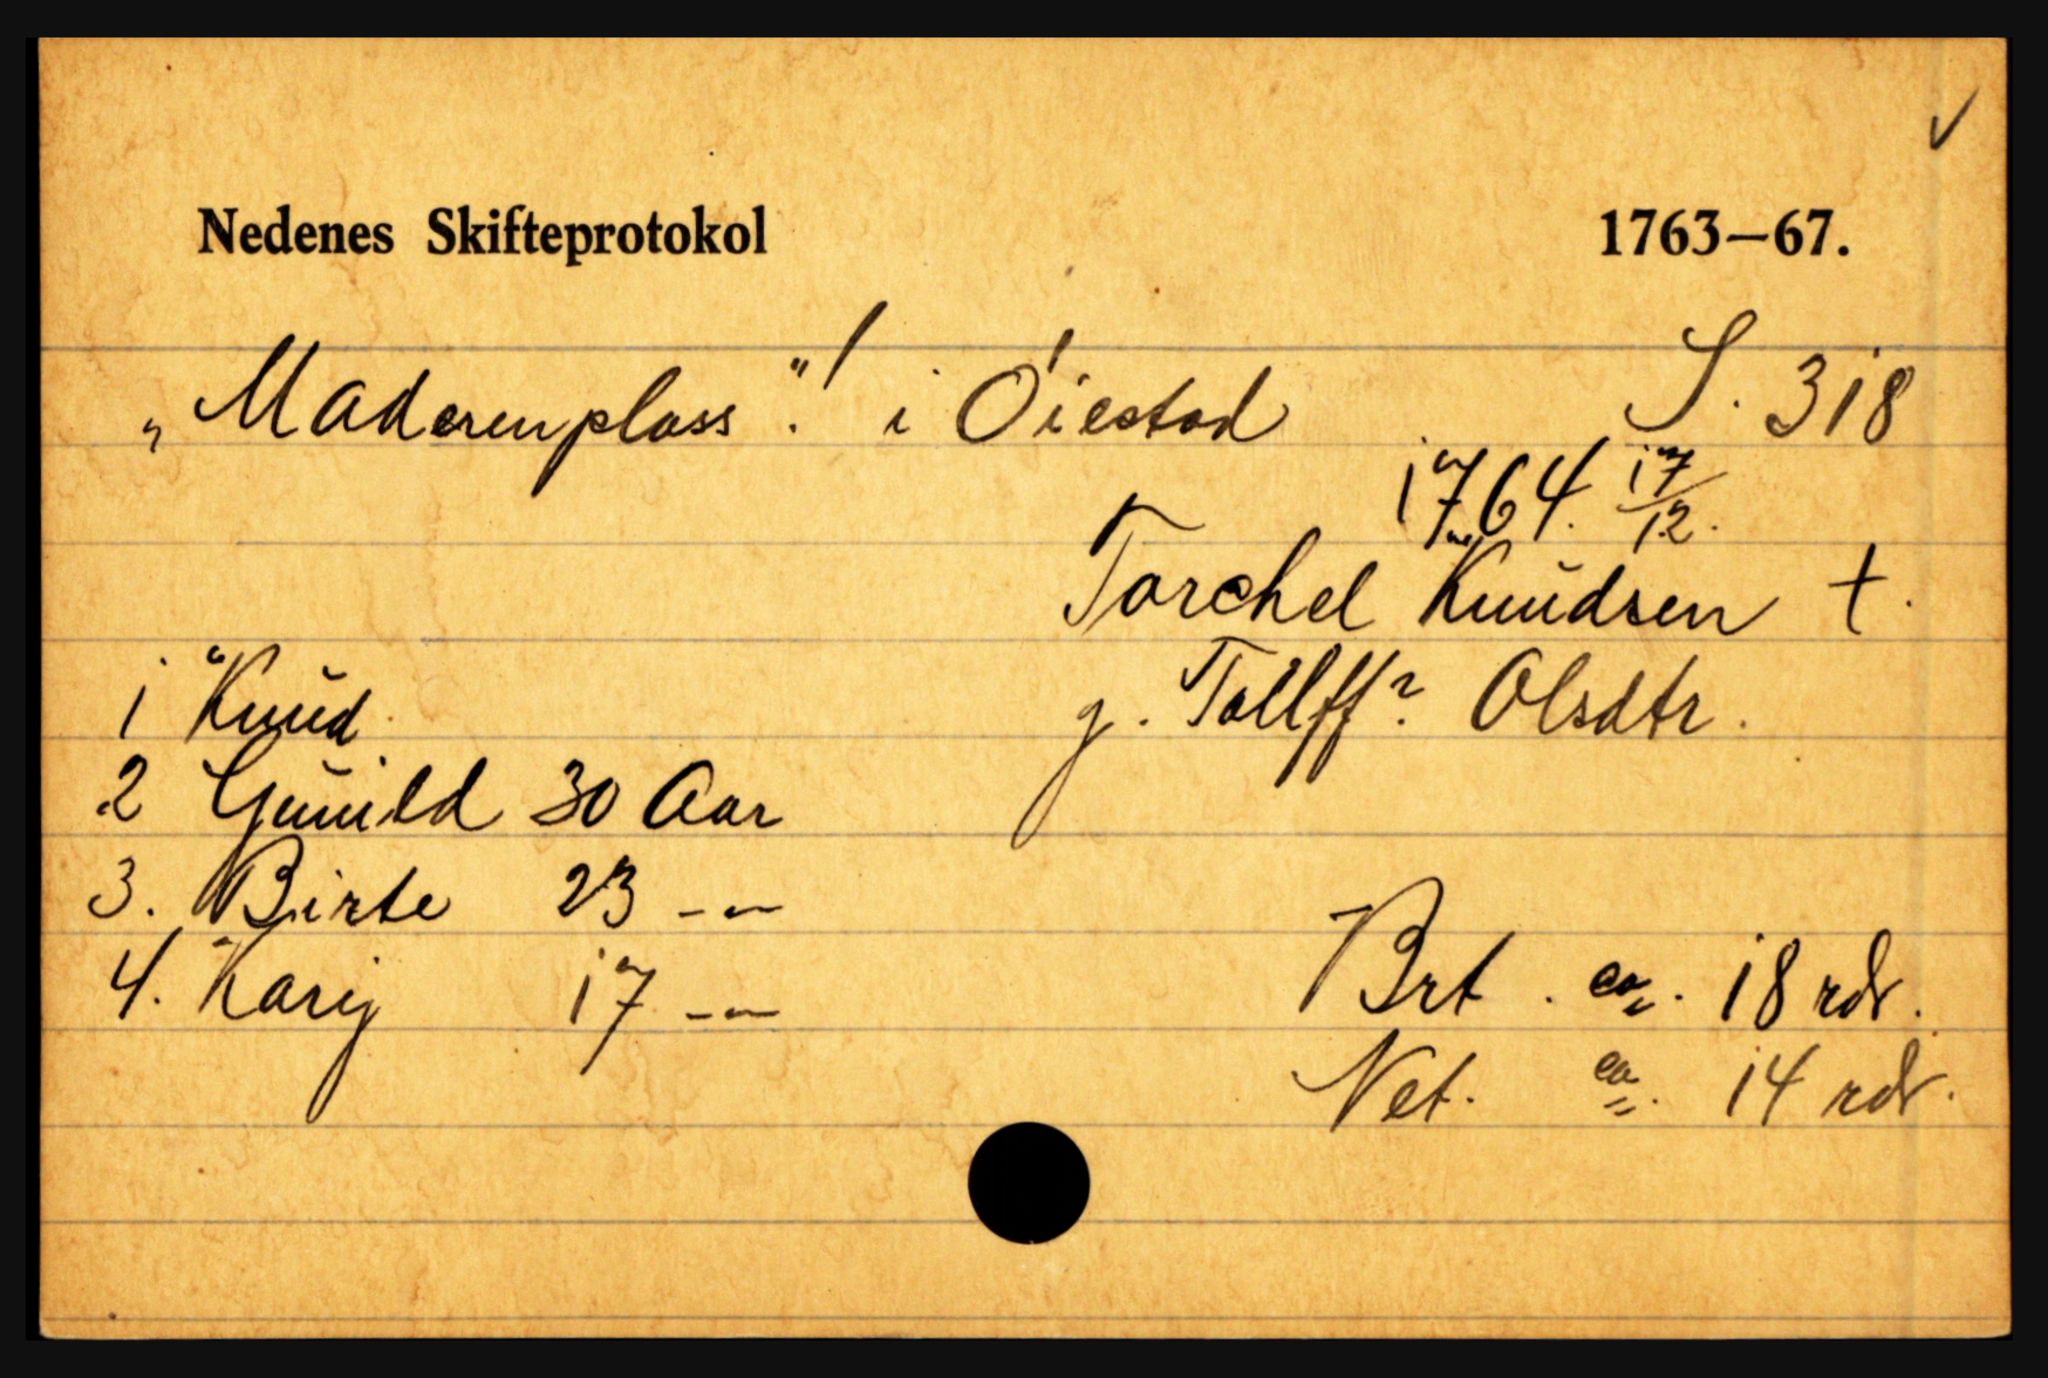 Nedenes Skifteprotokol 1763–67.
„Maderenplass". ! i Öiestad S. 318
1764. 17/12.
Torchel Knudsen †.
g. Tollff? Olsdtr.
1 Knud.
2 Gunild 30 Aar
3. Birte 23 -"-
4. Karij 17 -"-
Brt. ca. 18 rdr.
Net. ca. 14 rdr.